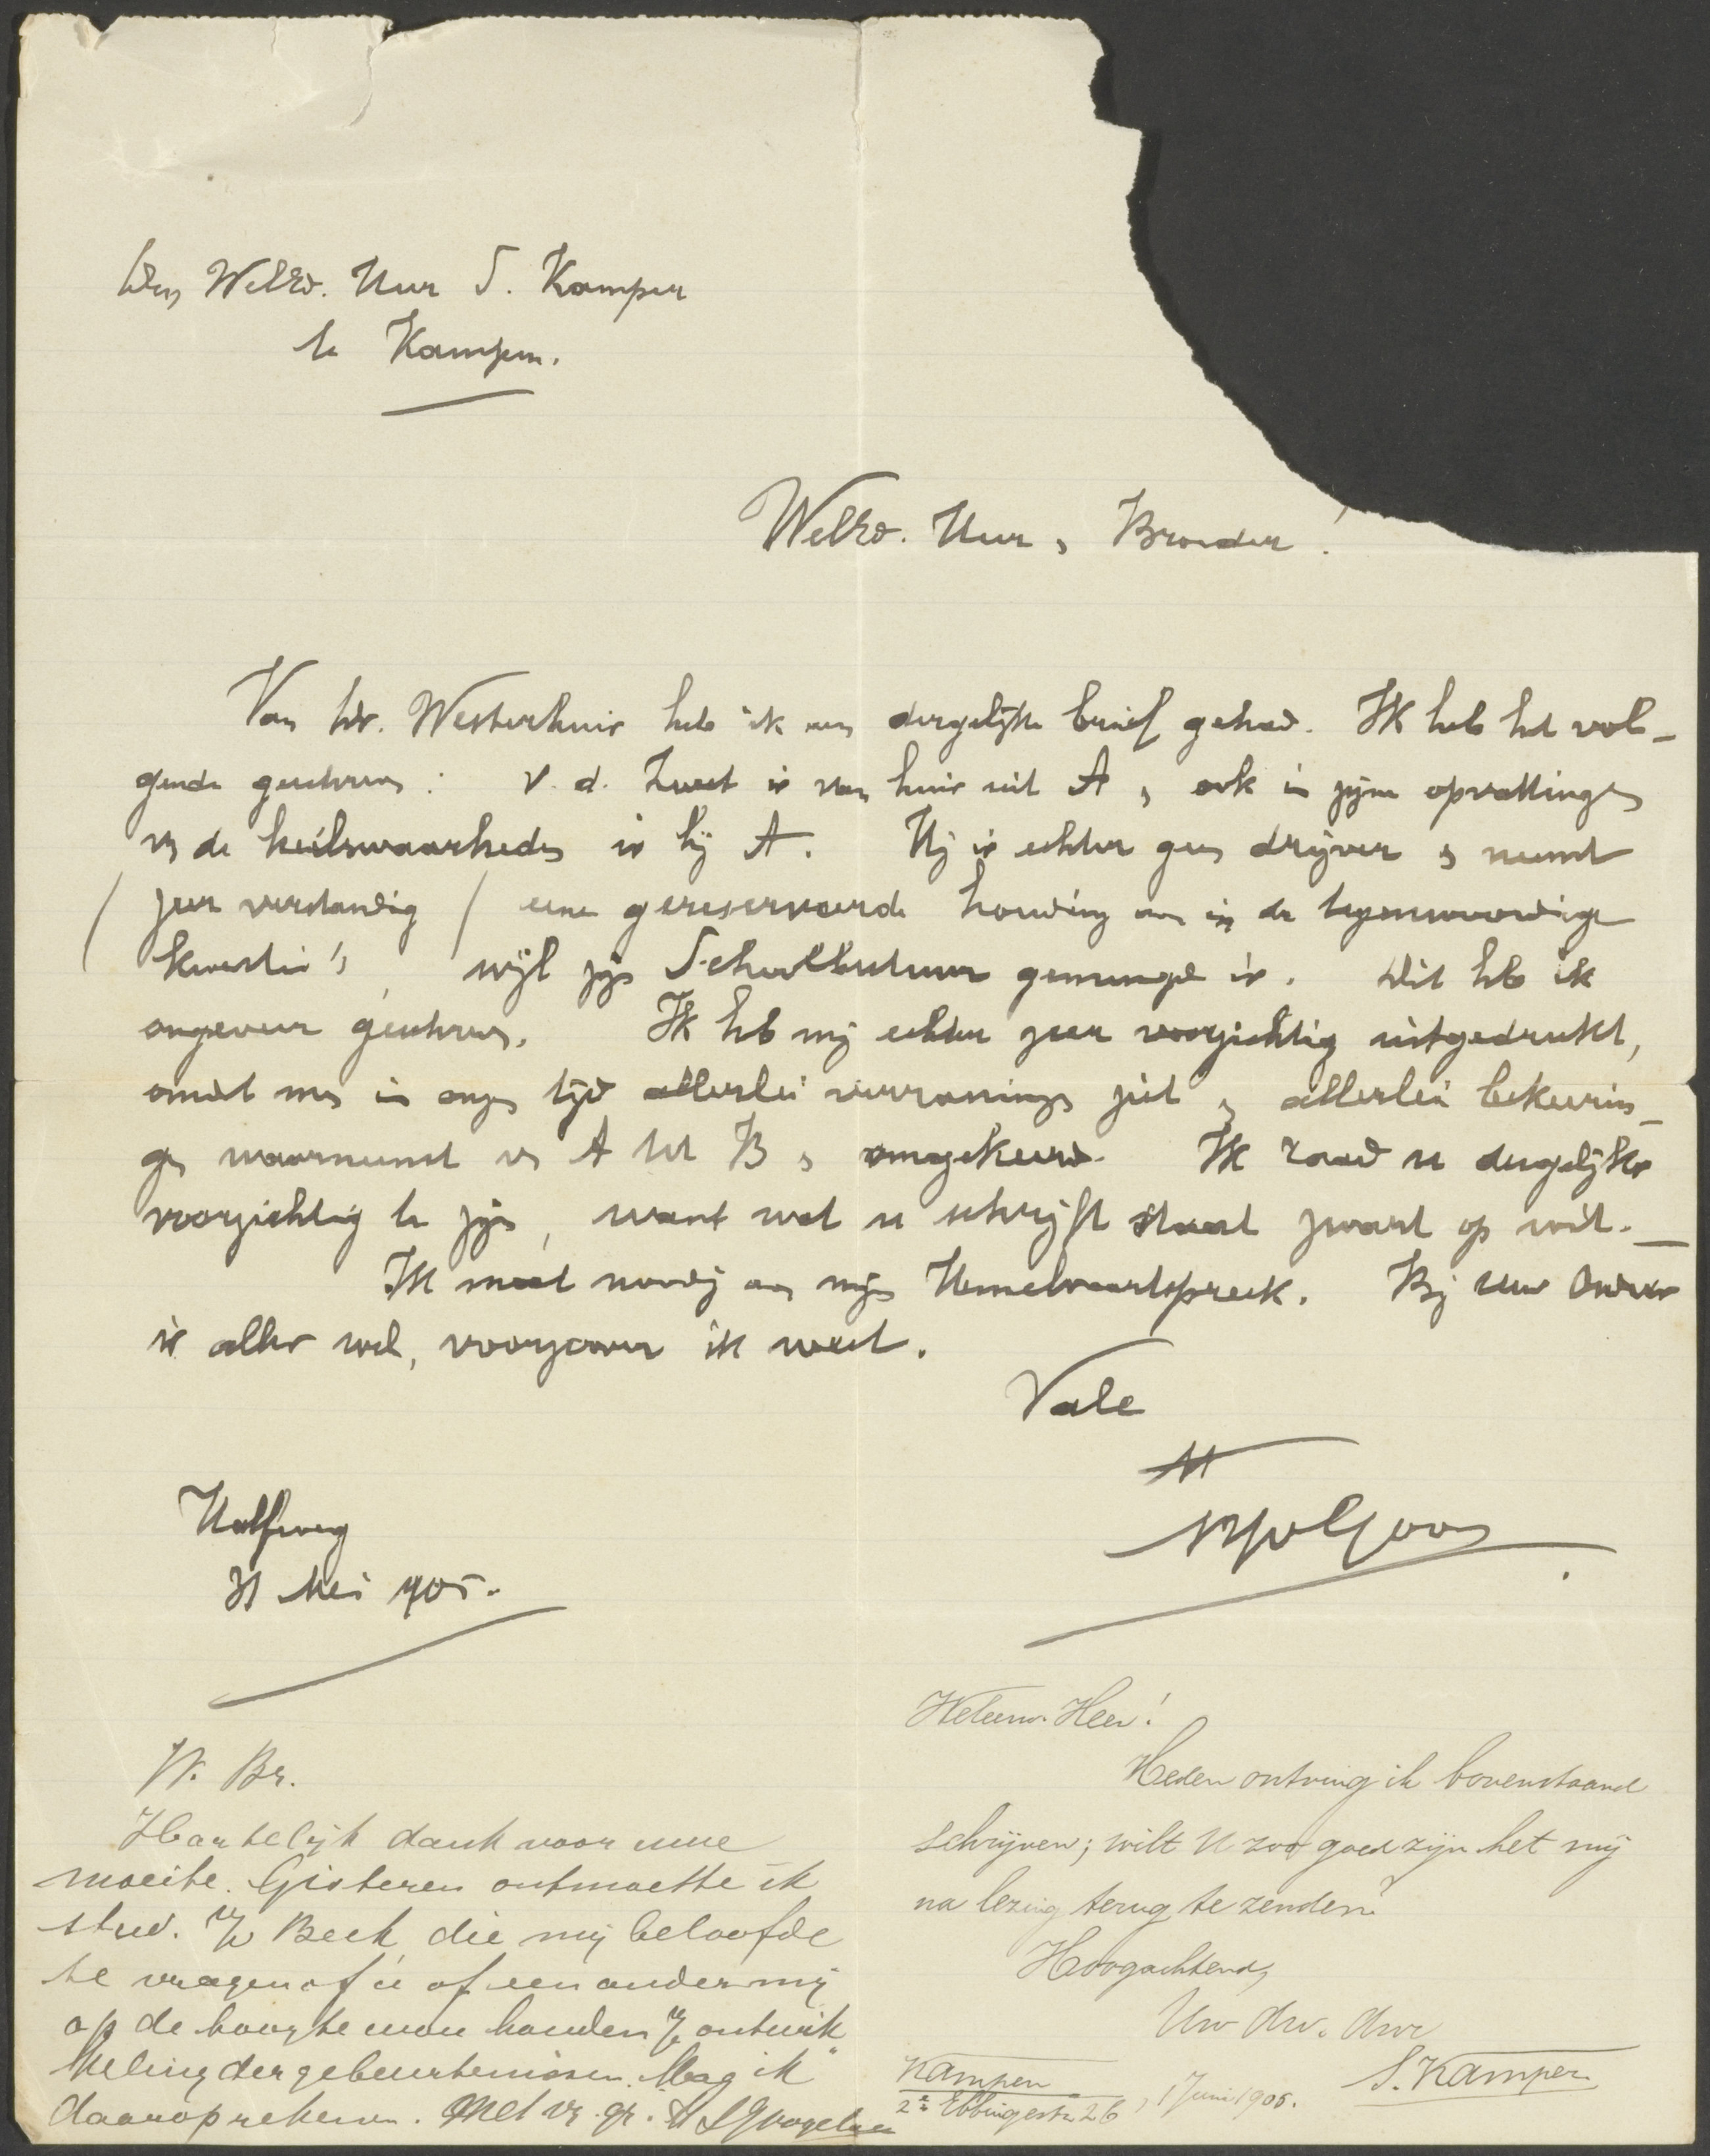 Den WelEd. Heer S. Kamper
te Kampen.
WelEd. Heer, Broeder!
Van br. Westerhuis heb ik een dergelijke brief gehad. Ik heb het vol-
gende geschreven: v. d. Zwet is van huis uit A, ook in zijne opvattingen
vn de heilswaarheden is hij A. Hij is echter geen drijver en neemt
(zeer verstandig) eene gereserveerde houding aan in de tegenwoordige
kwestie's, wijl zijn Schoolbestuur gemengd is. Dit heb ik
ongeveer geschreven. Ik heb mij echter zeer voorzichtig uitgedrukt,
omdat men in onzen tijd allerlei verrassingen ziet en allerlei bekeerin-
gen waarneemt vn A tot B en omgekeerd. Ik raad u dergelijks
voorzichtig te zijn, want wat u schrijft staat zwart op wit.
Ik moet noodig aan mijn Hemelvaartspreek. Bij uw Ouders
is alles wel, voorzoover ik weet.
Vale
Halfweg
31 Mei 905.
W. Br.
Hartelijk dank voor uwe
moeite. Gisteren ontmoette ik
stud. Beek, die mij beloofde
te vragen of u of een ander mij
op de hoogte wou houden ontwik-
keling der gebeurtenissen. Mag ik
daarop rekenen. Met vr. gr.
Weleerw. Heer!
Heden ontving ik bovenstaand
schrijven; wilt U zoo goed zijn het mij
na lezing terug te zenden?
Hoogachtend,
Uw dw. dnr
S. Kamper
Kampen, 1 Juni 1905.
2e Ebbingestr. 26